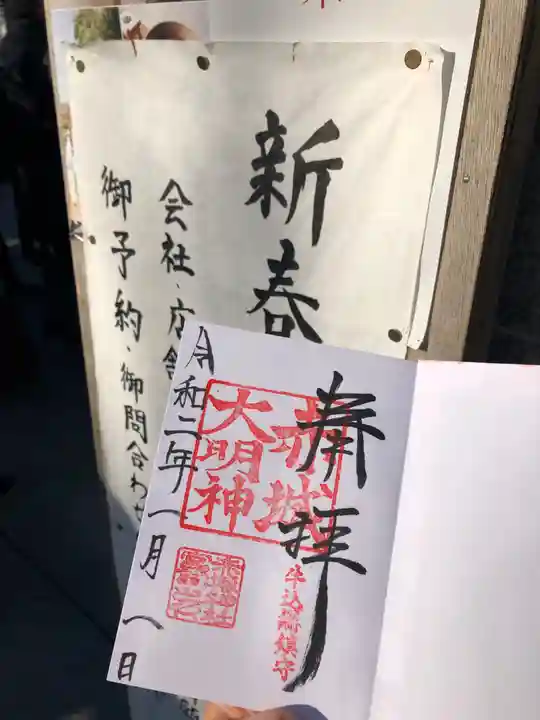 新春
会社・庁舎
御予約・御問合わせ
奉拝
赤城
大明神
牛込総鎮守
令和二年一月一日